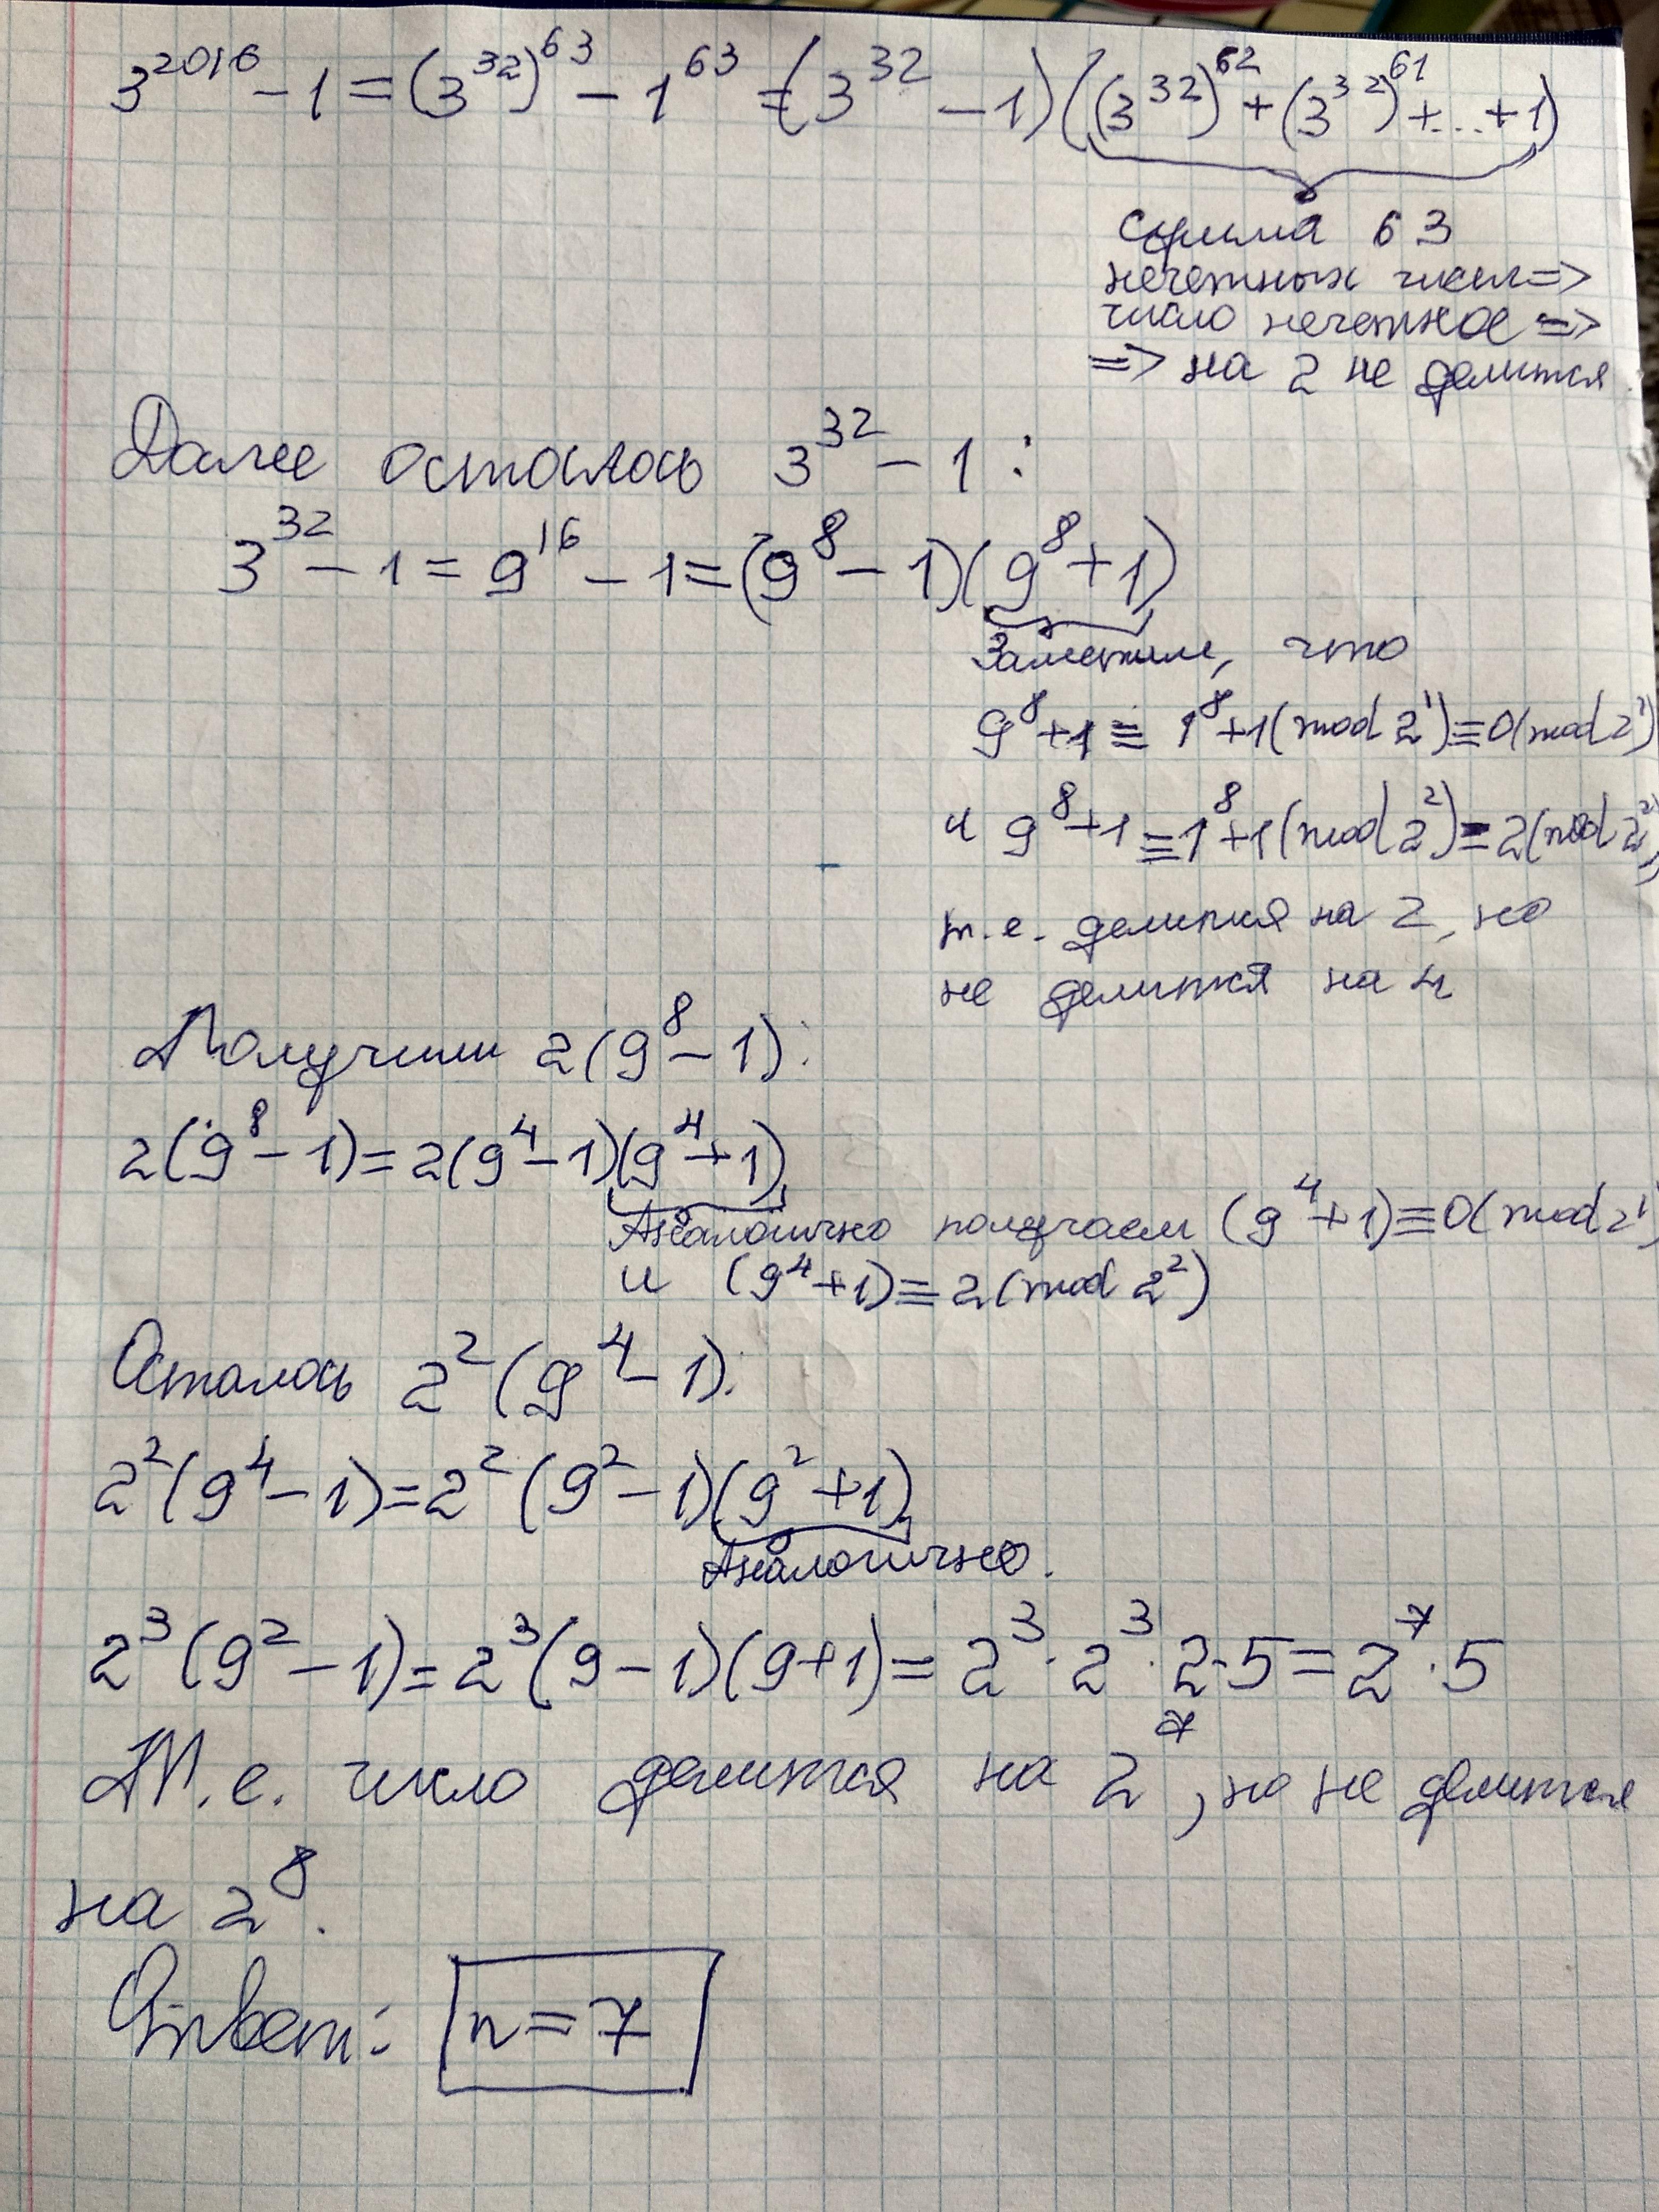 3^2016 − 1 = (3^32)^63 − 1^63 = (3^32 − 1)((3^32)^62 + (3^32)^61 + ... + 1)
Сумма 63
нечетных чисел =>
число нечетное =>
=> на 2 не делится.
Далее осталось 3^32 − 1 :
3^32 − 1 = 9^16 − 1 = (9^8 − 1)(9^8 + 1)
Заметим, что
9^8 + 1 ≡ 1^8 + 1 (mod 2^1) ≡ 0 (mod 2^1)
и 9^8 + 1 ≡ 1^8 + 1 (mod 2^2) = 2 (mod 2^2),
т.е. делится на 2, но
не делится на 4
Получили 2(9^8 − 1):
2(9^8 − 1) = 2(9^4 − 1)(9^4 + 1)
Аналогично получаем (9^4 + 1) ≡ 0 (mod 2^1)
и (9^4 + 1) ≡ 2 (mod 2^2)
Осталось 2^2 (9^4 − 1):
2^2 (9^4 − 1) = 2^2 (9^2 − 1)(9^2 + 1)
Аналогично.
2^3 (9^2 − 1) = 2^3 (9 − 1)(9 + 1) = 2^3 · 2^3 · 2 · 5 = 2^7 · 5
Т.е. число делится на 2^7, но не делится
на 2^8.
Ответ: n = 7